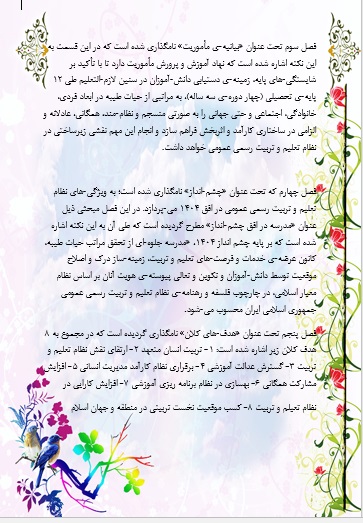 فصل سوم تحت عنوان «بیانیه-ی مأموریت» نامگذاری شده است که در این قسمت به
این نکته اشاره شده است که نهاد آموزش و پرورش مأموریت دارد تا با تأکید بر
شایستگی-های پایه، زمینه-ی دستیابی دانش-آموزان در سنین لازم-التعلیم طی ۱۲
پایه-ی تحصیلی (چهار دوره-ی سه ساله)، به مراتبی از حیات طیبه در ابعاد فردی،
خانوادگی، اجتماعی و حتی جهانی را به صورتی منسجم و نظام-مند، همگانی، عادلانه و
الزامی در ساختاری کارآمد و اثربخش فراهم سازد و انجام این مهم نقشی زیرساختی در
نظام تعلیم و تربیت رسمی عمومی خواهد داشت.
فصل چهارم که تحت عنوان «چشم-انداز» نامگذاری شده است؛ به ویژگی-های نظام
تعلیم و تربیت رسمی عمومی در افق ۱۴۰۴ می-پردازد. در این فصل مبحثی ذیل
عنوان «مدرسه در افق چشم-انداز» مطرح گردیده است که طی آن به این نکته اشاره
شده است که بر پایه چشم انداز ۱۴۰۴، «مدرسه جلوه-ای از تحقق مراتب حیات طیبه،
کانون عرضه-ی خدمات و فرصت-های تعلیم و تربیت، زمینه-ساز درک و اصلاح
موقعیت توسط دانش-آموزان و تکوین و تعالی پیوسته-ی هویت آنان بر اساس نظام
معیار اسلامی، در چارچوب فلسفه و رهنامه-ی نظام تعلیم و تربیت رسمی عمومی
جمهوری اسلامی ایران محسوب می-شود.
فصل پنجم تحت عنوان «هدف-های کلان» نامگذاری گردیده است که در مجموع به ۸
هدف کلان زیر اشاره شده است: ۱- تربیت انسان متعهد ۲- ارتقای نقش نظام تعلیم و
تربیت ۳- گسترش عدالت آموزشی ۴- برقراری نظام کارآمد مدیریت انسانی ۵- افزایش
مشارکت همگانی ۶- بهسازی در نظام برنامه ریزی آموزشی ۷- افزایش کارایی در
نظام تعیلم و تربیت ۸- کسب موقعیت نخست تربیتی در منطقه و جهان اسلام